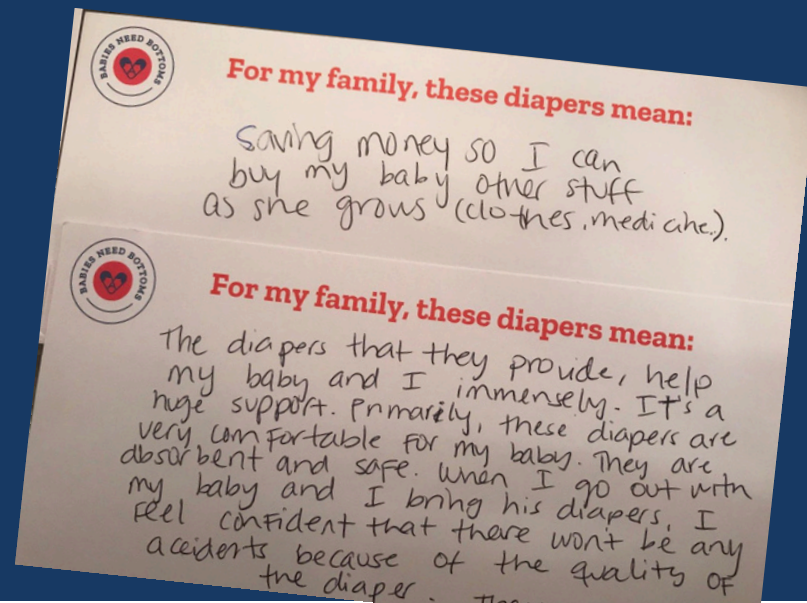 BABIES NEED BOTTOMS
For my family, these diapers mean:
Saving money so I can
buy my baby other stuff
as she grows (clothes, medicine.).
BABIES NEED BOTTOMS
For my family, these diapers mean:
The diapers that they provide, help
my baby and I immensely. It's a
huge support. Primarily, these diapers are
very comfortable for my baby. They are
absorbent and safe. When I go out with
my baby and I bring his diapers, I
feel confident that there won't be any
accidents because of the quality of
the diaper.